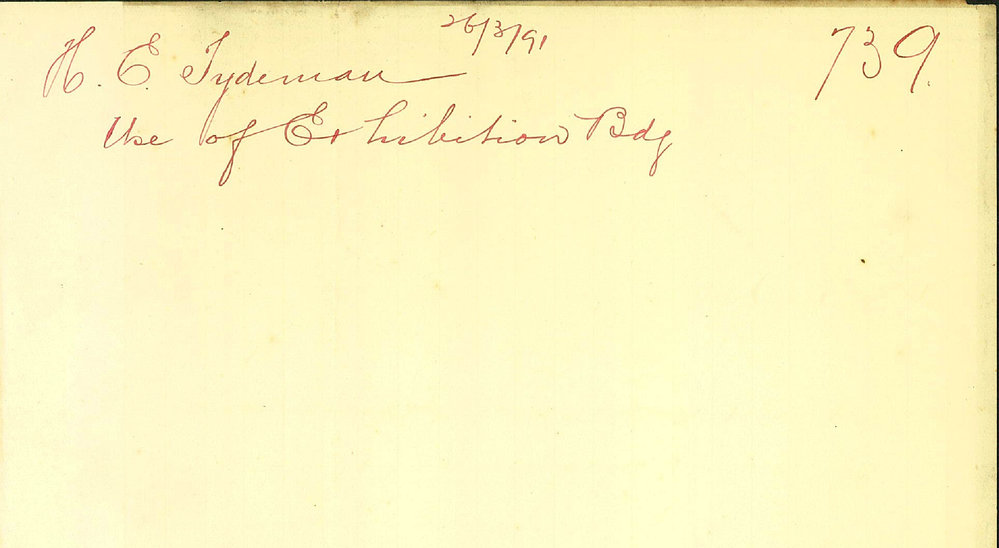 26/3/91
H. E. Tydeman 739.
Use of Exhibition Bdg